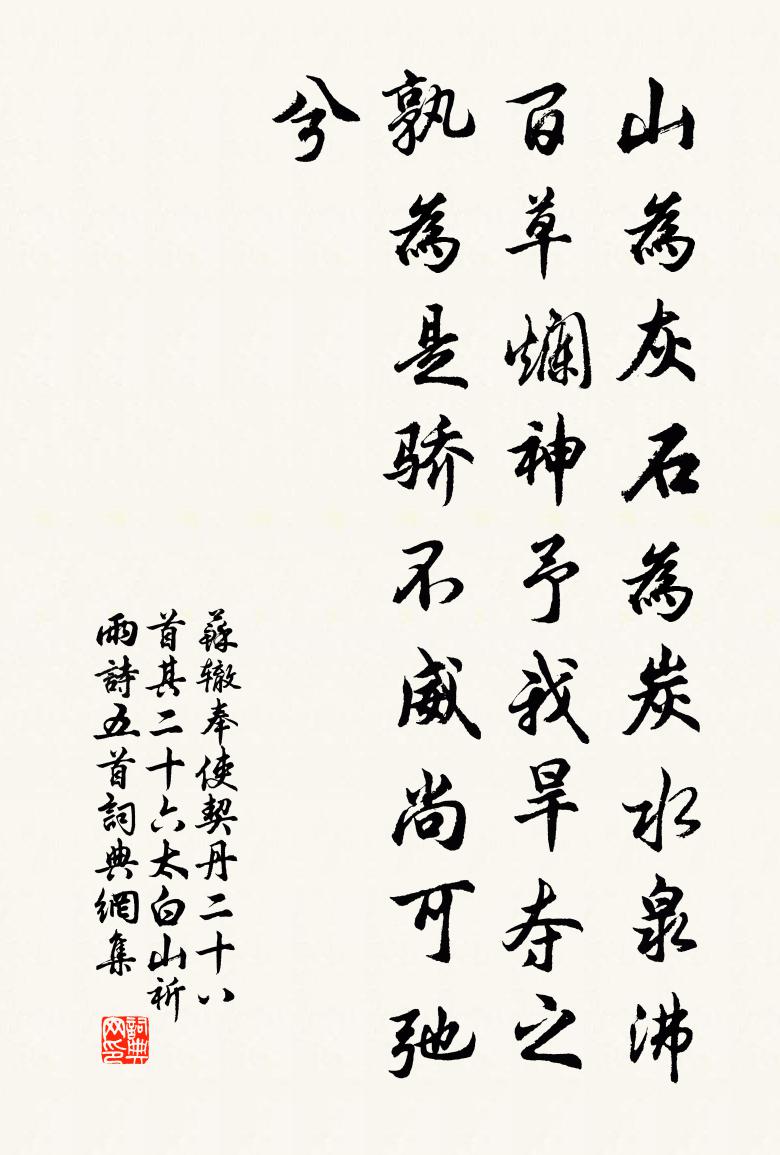 山為灰石為炭水泉沸
百草爛神予我旱夺之
孰為是骄不威尚可弛
兮
蘇辙奉使契丹二十八
首其二十六太白山祈
雨詩五首詞典網集
詞典网印